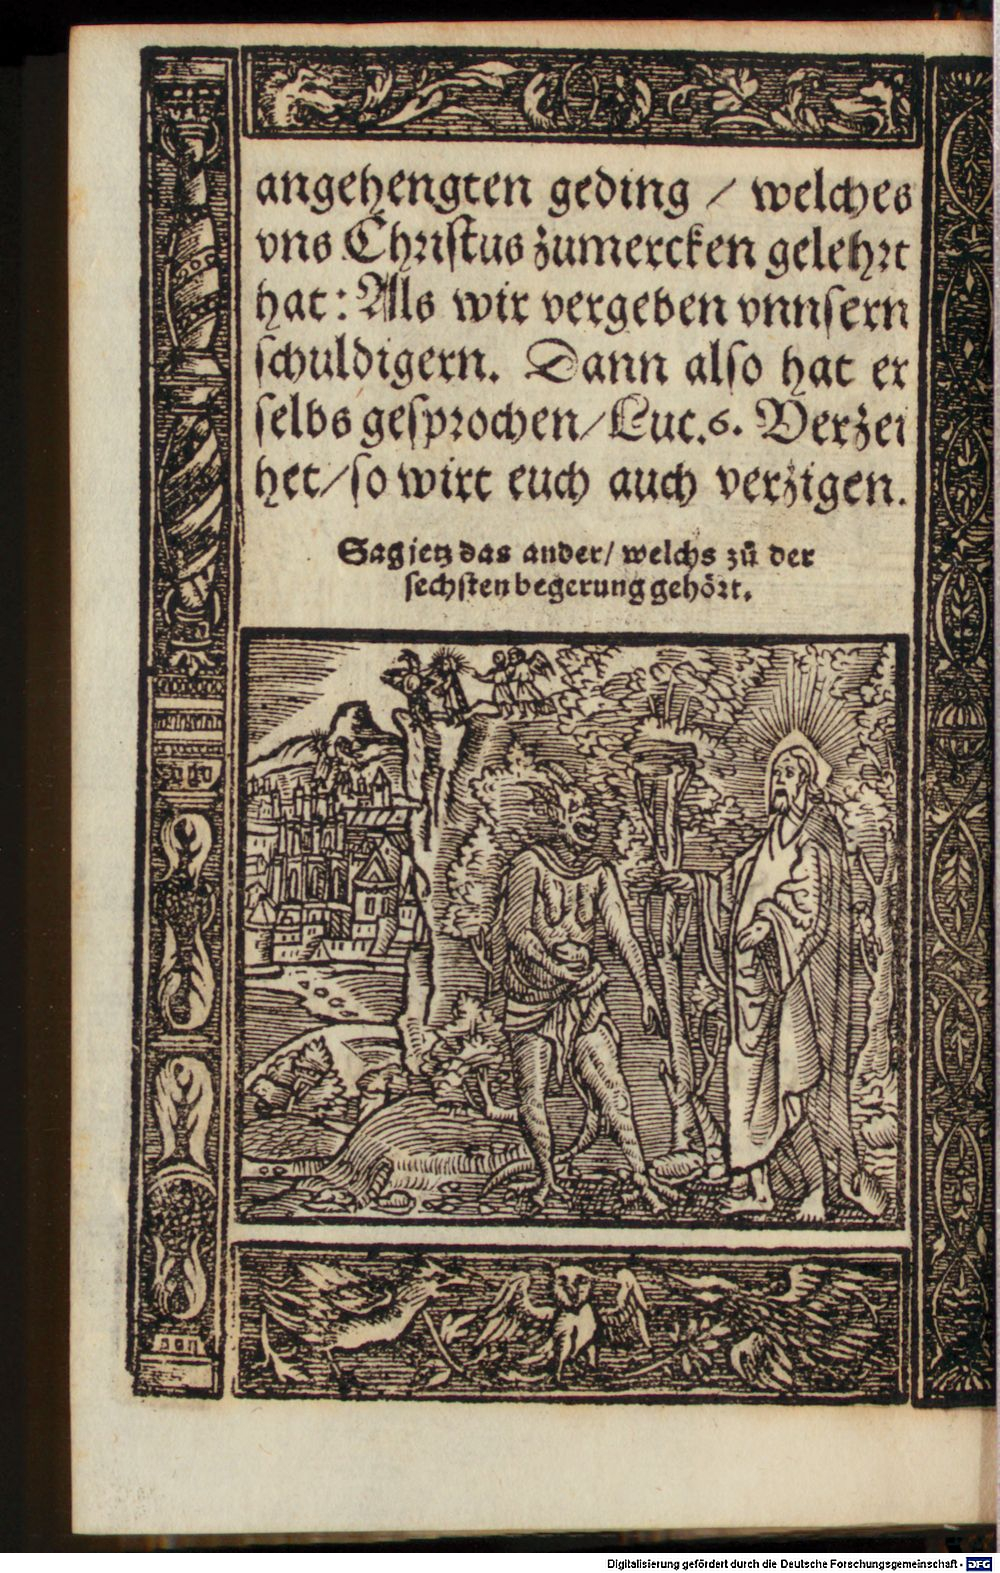 angehengten geding / welches
vns Christus zumercken gelehrt
hat: Als wir vergeben vnnsern
schuldigern. Dann also hat er
selbs gesprochen/ Luc.6. Verzei
het/ so wirt euch auch verzigen.
Sag jetz das ander/ welchs zů der
sechsten begerung gehört.
Digitalisierung gefördert durch die Deutsche Forschungsgemeinschaft - DFG